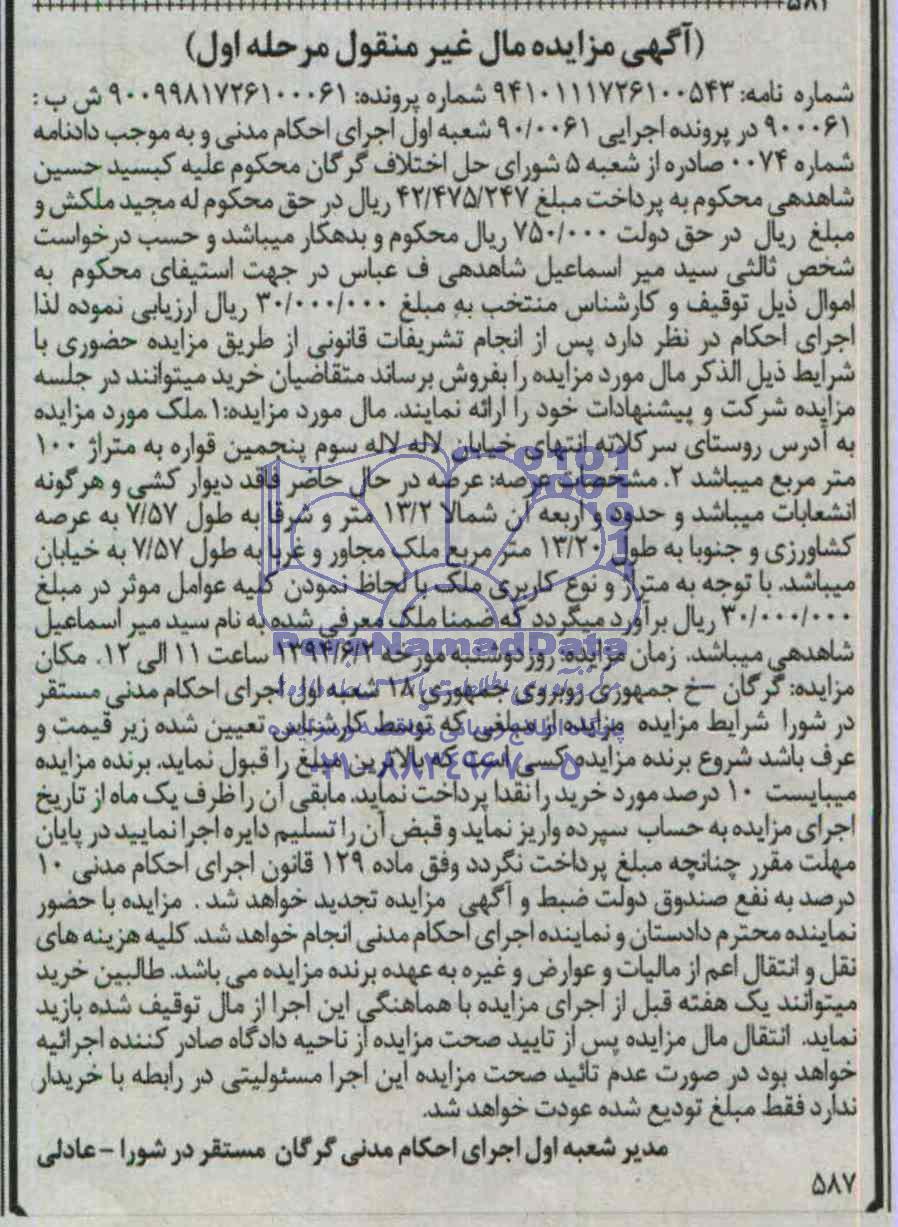 ۵۸۲
(آگهی مزایده مال غیر منقول مرحله اول)
شماره نامه: ۹۴۱۰۱۱۱۷۲۶۱۰۰۵۴۳ شماره پرونده: ۹۰۰۹۹۸۱۷۲۶۱۰۰۰۶۱ ش ب :
۹۰۰۰۶۱ در پرونده اجرایی ۹۰/۰۰۶۱ شعبه اول اجرای احکام مدنی و به موجب دادنامه
شماره ۰۰۷۴ صادره از شعبه ۵ شورای حل اختلاف گرگان محکوم علیه کبسید حسین
شاهدهی محکوم به پرداخت مبلغ ۴۲/۴۷۵/۲۴۷ ریال در حق محکوم له مجید ملکش و
مبلغ ریال در حق دولت ۷۵۰/۰۰۰ ریال محکوم و بدهکار میباشد و حسب درخواست
شخص ثالثی سید میر اسماعیل شاهدهی ف عباس در جهت استیفای محکوم به
اموال ذیل توقیف و کارشناس منتخب به مبلغ ۳۰/۰۰۰/۰۰۰ ریال ارزیابی نموده لذا
اجرای احکام در نظر دارد پس از انجام تشریفات قانونی از طریق مزایده حضوری با
شرایط ذیل الذکر مال مورد مزایده را بفروش برساند متقاضیان خرید میتوانند در جلسه
مزایده شرکت و پیشنهادات خود را ارائه نمایند. مال مورد مزایده:۱.ملک مورد مزایده
به آدرس روستای سرکلاته انتهای خیابان لاله لاله سوم پنجمین قواره به متراژ ۱۰۰
متر مربع میباشد ۲. مشخصات عرصه: عرصه در حال حاضر فاقد دیوار کشی و هرگونه
انشعابات میباشد و حدود و اربعه آن شمالا ۱۳/۲ متر و شرقا به طول ۷/۵۷ به عرصه
کشاورزی و جنوبا به طول ۱۳/۲۰ متر مربع ملک مجاور و غربا به طول ۷/۵۷ به خیابان
میباشد. با توجه به متراژ و نوع کاربری ملک با لحاظ نمودن کلیه عوامل موثر در مبلغ
۳۰/۰۰۰/۰۰۰ ریال برآورد میگردد که ضمنا ملک معرفی شده به نام سید میر اسماعیل
شاهدهی میباشد. زمان مزایده: روز دوشنبه مورخه ۱۳۹۴/۶/۲ ساعت ۱۱ الی ۱۲. مکان
مزایده: گرگان –خ جمهوری روبروی جمهوری ۱۸ شعبه اول اجرای احکام مدنی مستقر
در شورا شرایط مزایده مزایده از مبلغی که توسط کارشناس تعیین شده زیر قیمت و
عرف باشد شروع برنده مزایده کسی است که بالاترین مبلغ را قبول نماید. برنده مزایده
میبایست ۱۰ درصد مورد خرید را نقدا پرداخت نماید. مابقی آن را ظرف یک ماه از تاریخ
اجرای مزایده به حساب سپرده واریز نماید و قبض آن را تسلیم دایره اجرا نمایید در پایان
مهلت مقرر چنانچه مبلغ پرداخت نگردد وفق ماده ۱۲۹ قانون اجرای احکام مدنی ۱۰
درصد به نفع صندوق دولت ضبط و آگهی مزایده تجدید خواهد شد . مزایده با حضور
نماینده محترم دادستان و نماینده اجرای احکام مدنی انجام خواهد شد. کلیه هزینه های
نقل و انتقال اعم از مالیات و عوارض و غیره به عهده برنده مزایده می باشد. طالبین خرید
میتوانند یک هفته قبل از اجرای مزایده با هماهنگی این اجرا از مال توقیف شده بازید
نماید. انتقال مال مزایده پس از تایید صحت مزایده از ناحیه دادگاه صادر کننده اجرائیه
خواهد بود در صورت عدم تائید صحت مزایده این اجرا مسئولیتی در رابطه با خریدار
ندارد فقط مبلغ تودیع شده عودت خواهد شد.
مدیر شعبه اول اجرای احکام مدنی گرگان مستقر در شورا – عادلی
۵۸۷
ParsNamadData
۰۲۱-۸۸۳۴۹۶۷۰-۵